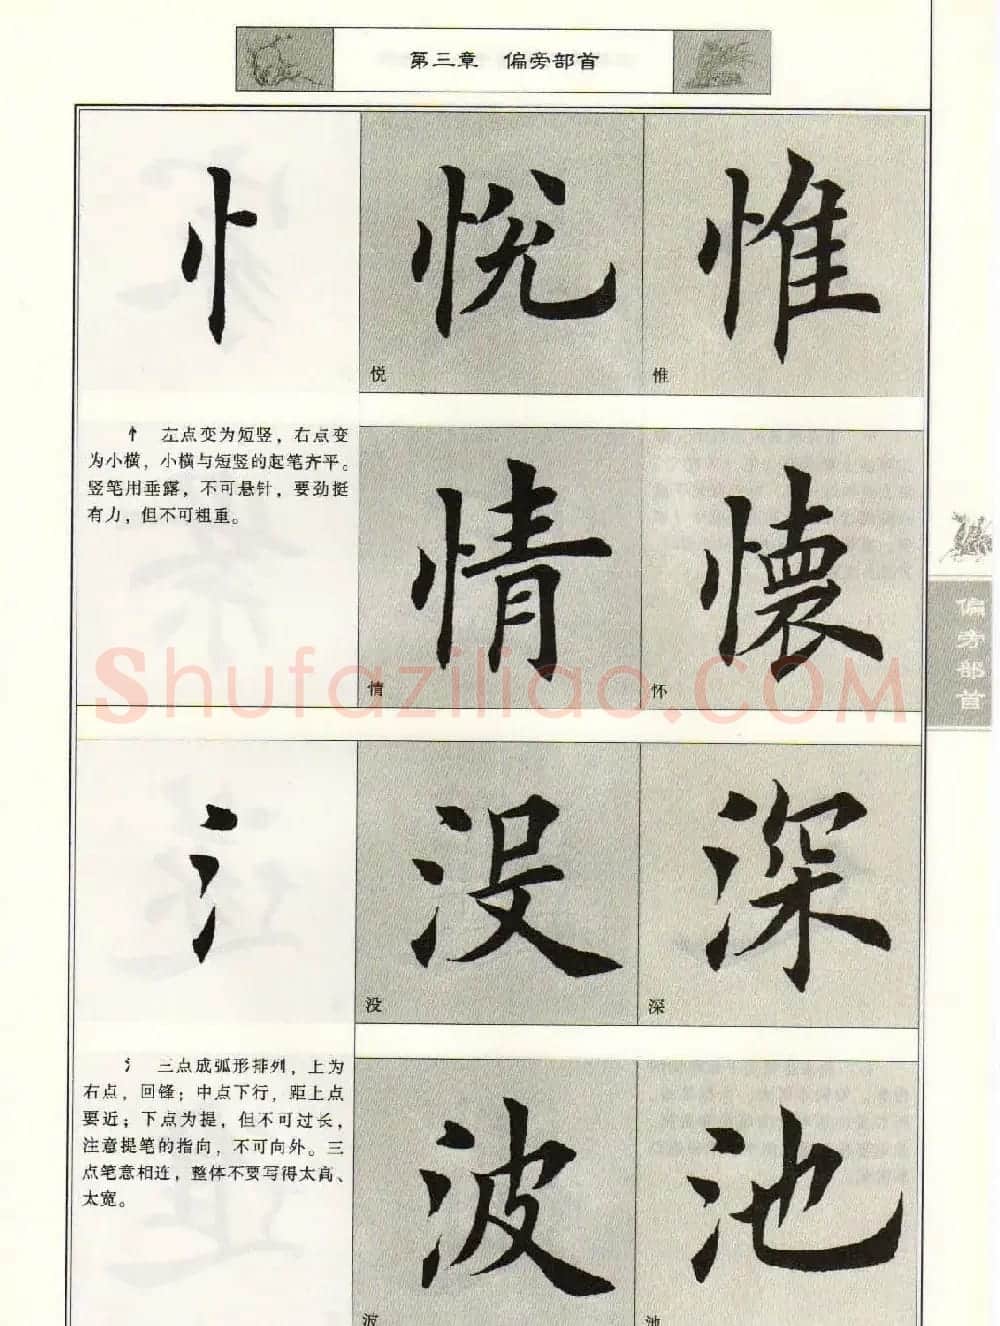 第三章 偏旁部首
忄 悦 惟
悦 惟
忄 左点变为短竖，右点变
为小横，小横与短竖的起笔齐平。
竖笔用垂露，不可悬针，要劲挺
有力，但不可粗重。
情 懷
情 怀
偏旁部首
Shufaziliao.COM
氵 没 深
没 深
氵 三点成弧形排列，上为
右点，回锋；中点下行，距上点
要近；下点为提，但不可过长，
注意提笔的指向，不可向外。三
点笔意相连，整体不要写得太高、
太宽。
波 池
波 池